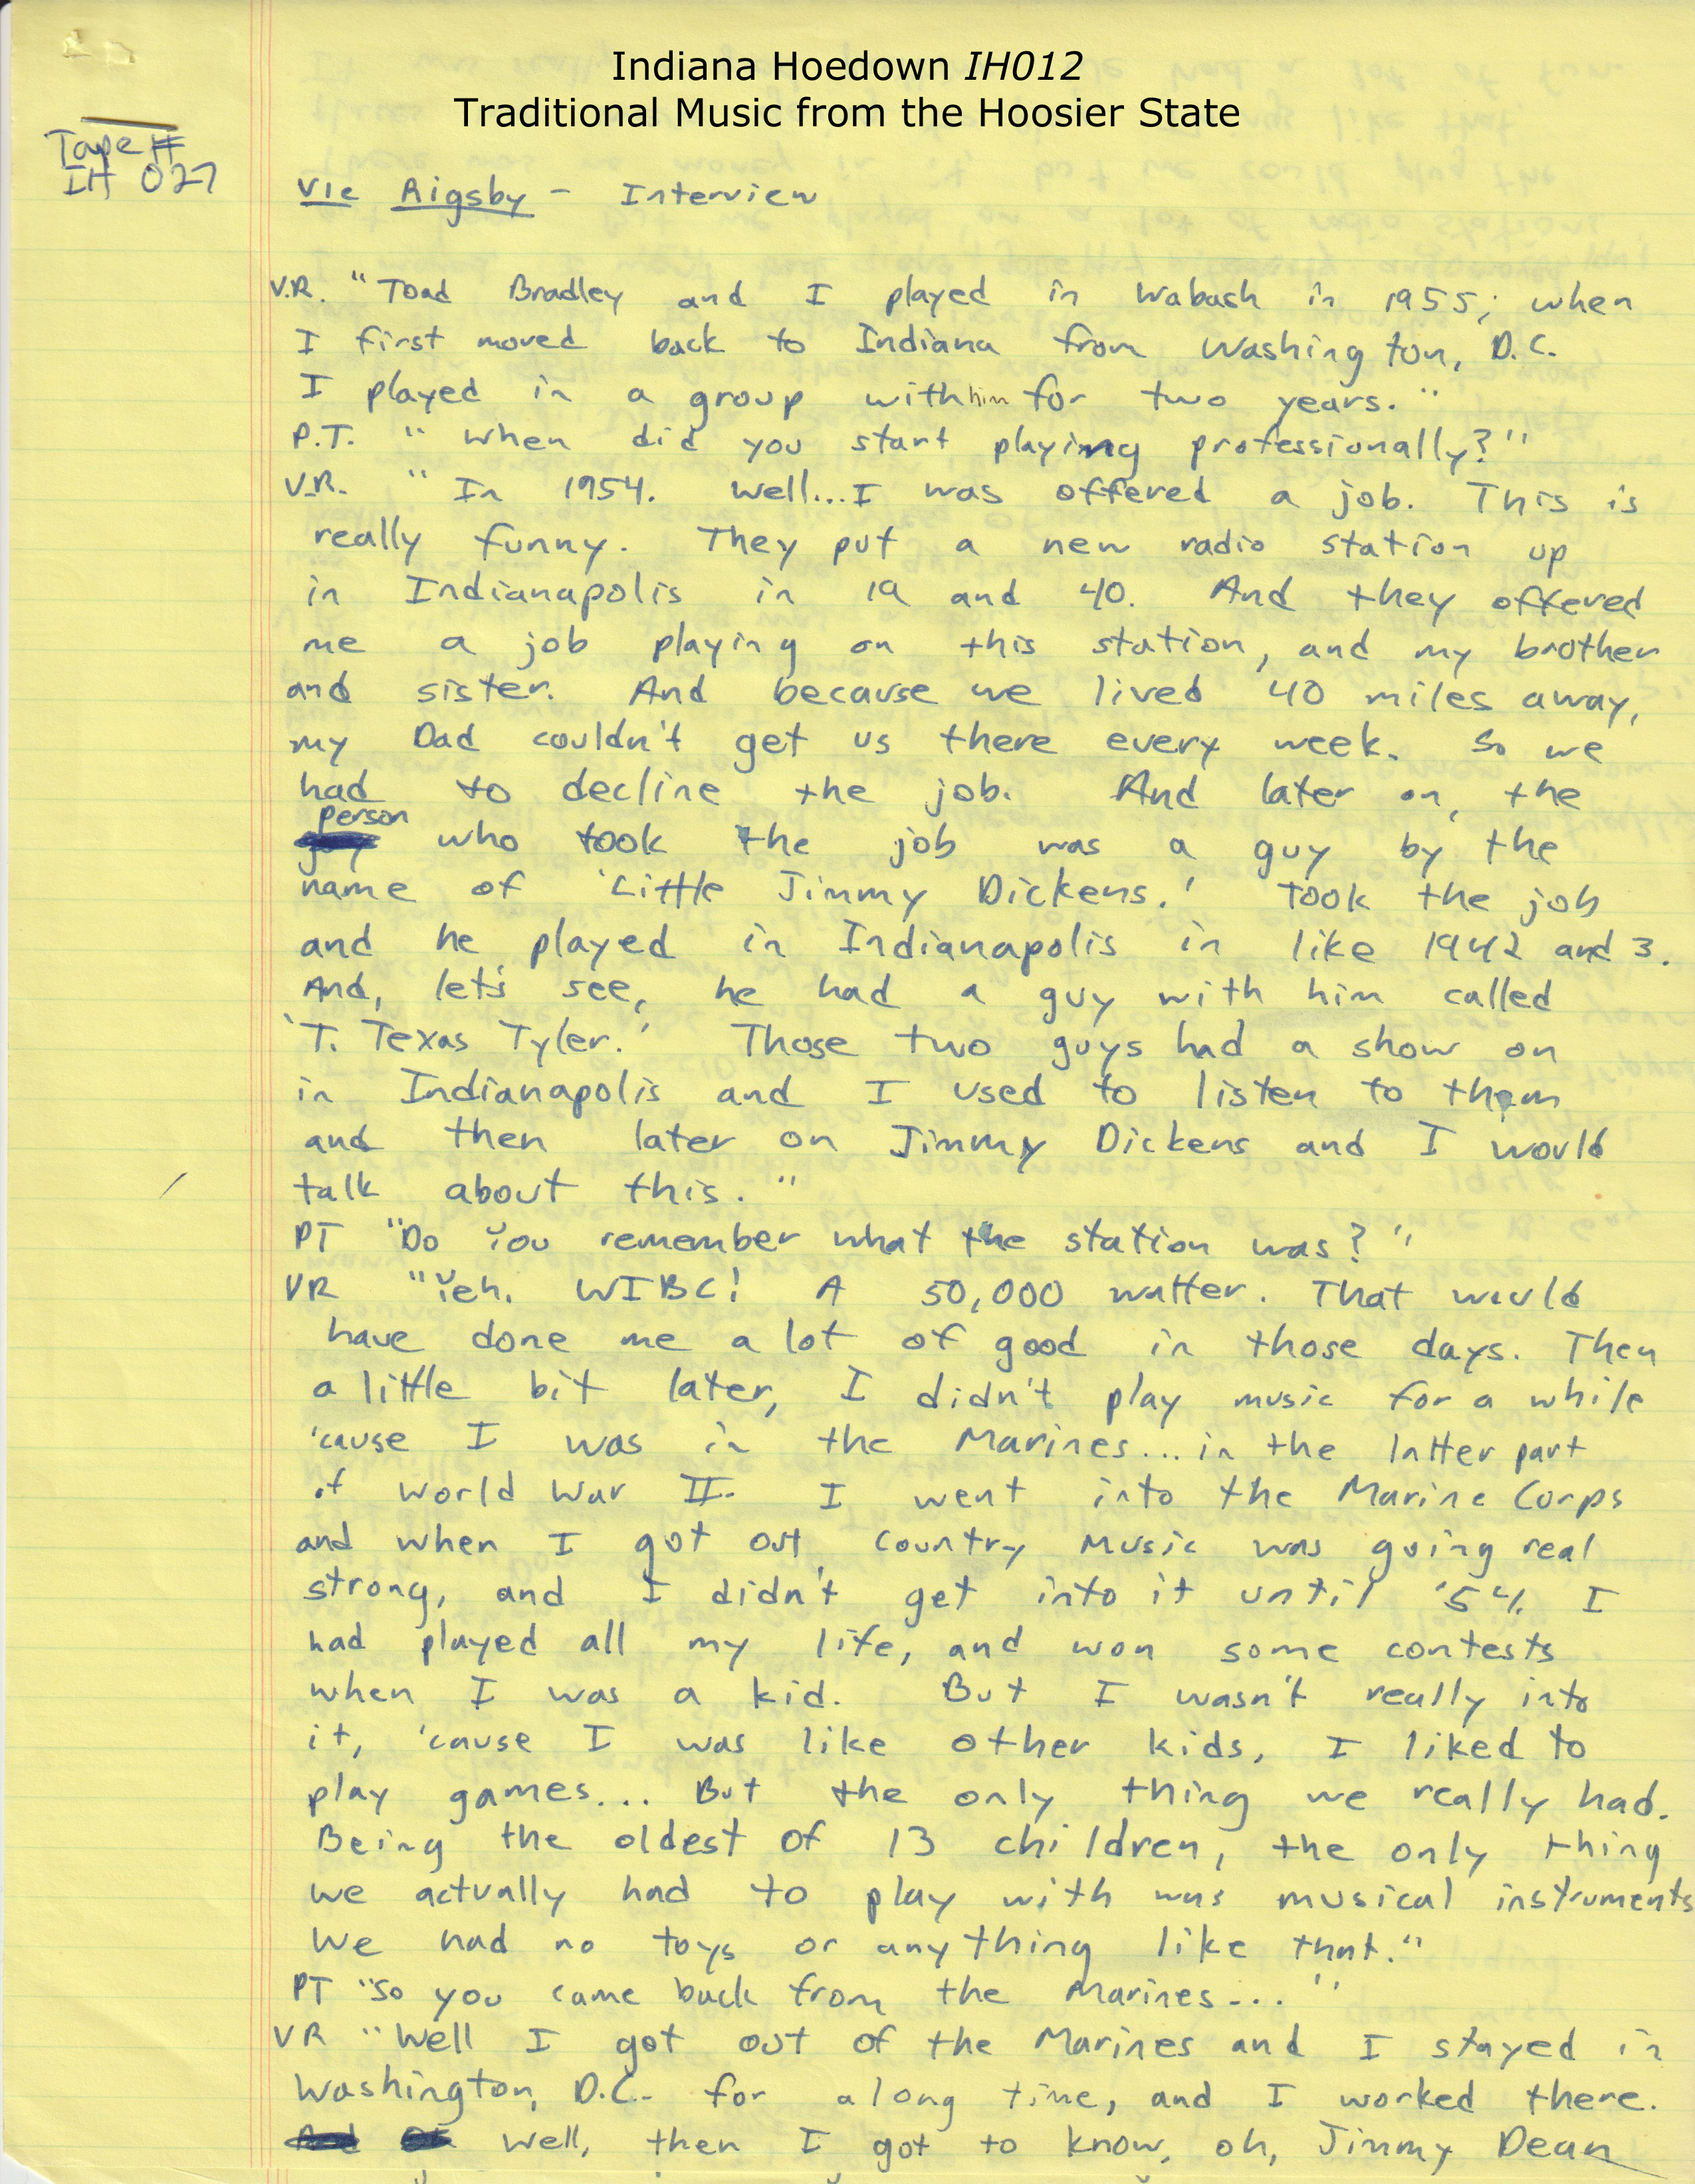 Indiana Hoedown IH012
Traditional Music from the Hoosier State
Tape #
IH 027
Vic Rigsby - Interview
V.R. "Toad Bradley and I played in Wabash in 1955; when
I first moved back to Indiana from Washington, D.C.
I played in a group with him for two years."
P.T. "When did you start playing professionally?"
V.R. "In 1954. Well...I was offered a job. This is
really funny. They put a new radio station up
in Indianapolis in 19 and 40. And they offered
me a job playing on this station, and my brother
and sister. And because we lived 40 miles away,
my Dad couldn't get us there every week. So we
had to decline the job. And later on, the
person who took the job was a guy by the
name of 'Little Jimmy Dickens.' Took the job
and he played in Indianapolis in like 1942 and 3.
And, let's see, he had a guy with him called
'T. Texas Tyler.' Those two guys had a show on
in Indianapolis and I used to listen to them
and then later on Jimmy Dickens and I would
talk about this."
PT "Do You remember what the station was?"
VR "Yeh. WIBC! A 50,000 watter. That would
have done me a lot of good in those days. Then
a little bit later, I didn't play music for a while
'cause I was in the Marines...in the latter part
of World War II. I went into the Marine Corps
and when I got out, country music was going real
strong, and I didn't get into it until '54. I
had played all my life, and won some contests
when I was a kid. But I wasn't really into
it, 'cause I was like other kids, I liked to
play games... But the only thing we really had.
Being the oldest of 13 children, the only thing
we actually had to play with was musical instruments
We had no toys or anything like that."
PT "So you came back from the Marines..."
VR "Well I got out of the Marines and I stayed in
Washington, D.C. for a long time, and I worked there.
Well, then I got to know, oh, Jimmy Dean